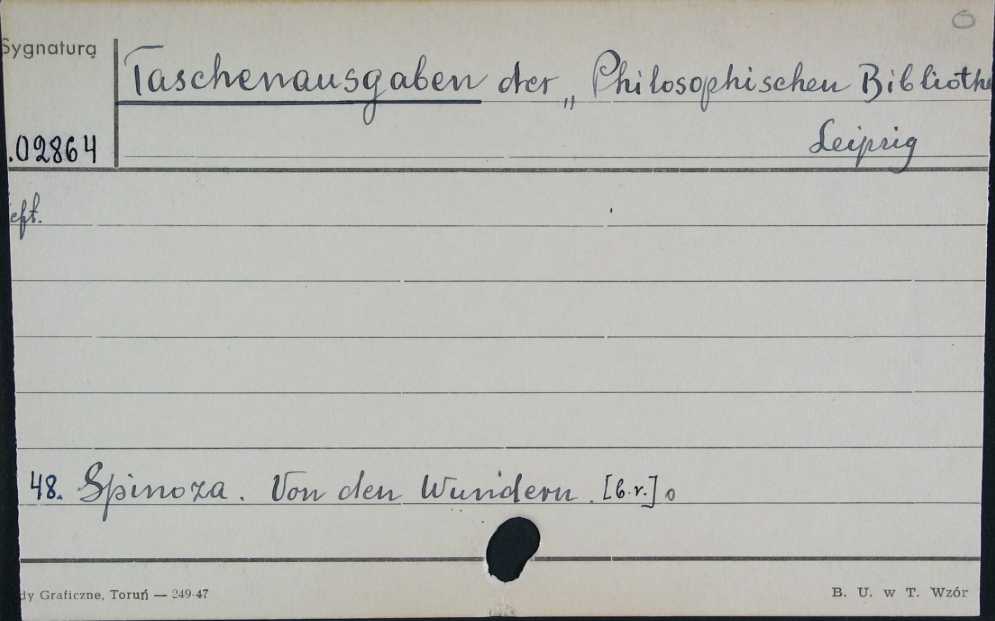 Sygnatura
Taschenausgaben der „Philosophischen Biblioth
.02864
Leipzig
eft.
48. Spinoza. Von den Wundern. [b.r.] o
dy Graficzne, Toruń — 249-47
B. U. w T. Wzór